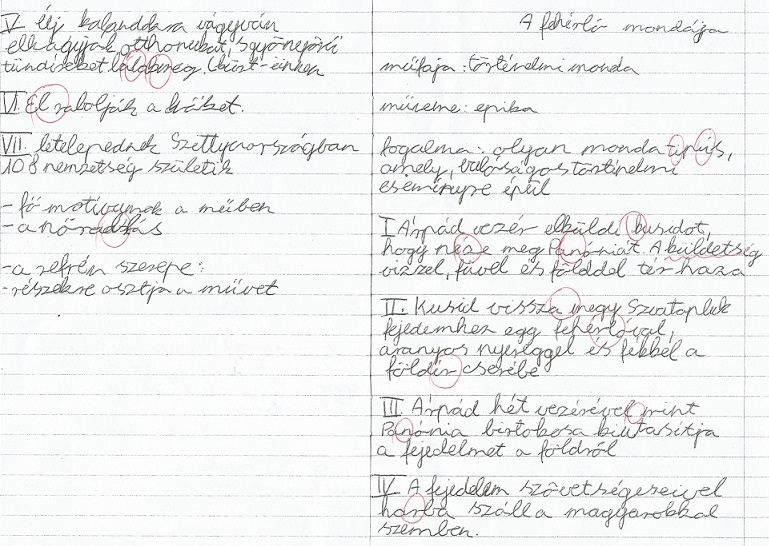 V. Élj kalandokra vágyván
elhagyják otthonukat, gyönyörű
tündéreket
VI. El rabolják a kéket.
VII. letelepednek Szettyországban
108 nemzetség születik
- fő motívumok a műben
- a nőrablás
- a refrén szerepe:
- részekre osztja a művet
A fehérló mondája
műfaja: történelmi monda
műneme: epika
fogalma: olyan monda tipús,
amely, valóságos történelmi
eseményre épül
I. Árpád vezér elküldi kusidot,
hogy néze meg Panóniát. A küldetség
vízzel, fűvel és földdel tér haza
II. Kusid vissza megy Szvatapluk
fejedemhez egy fehérlóval,
aranyos nyereggel és fékkel a
földér cserébe
III. Árpád hét vezérével mint
Panónia birtokosa kiutasítja
a fejedelmet a földről
IV. A fejedelem szövetségeseivel
harba száll a magyarokkal
szemben.